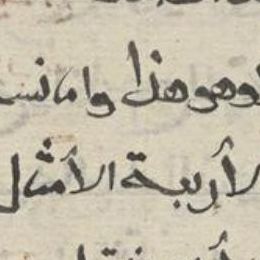 وهو هذا وامانسـ
الأربعة الأمثال